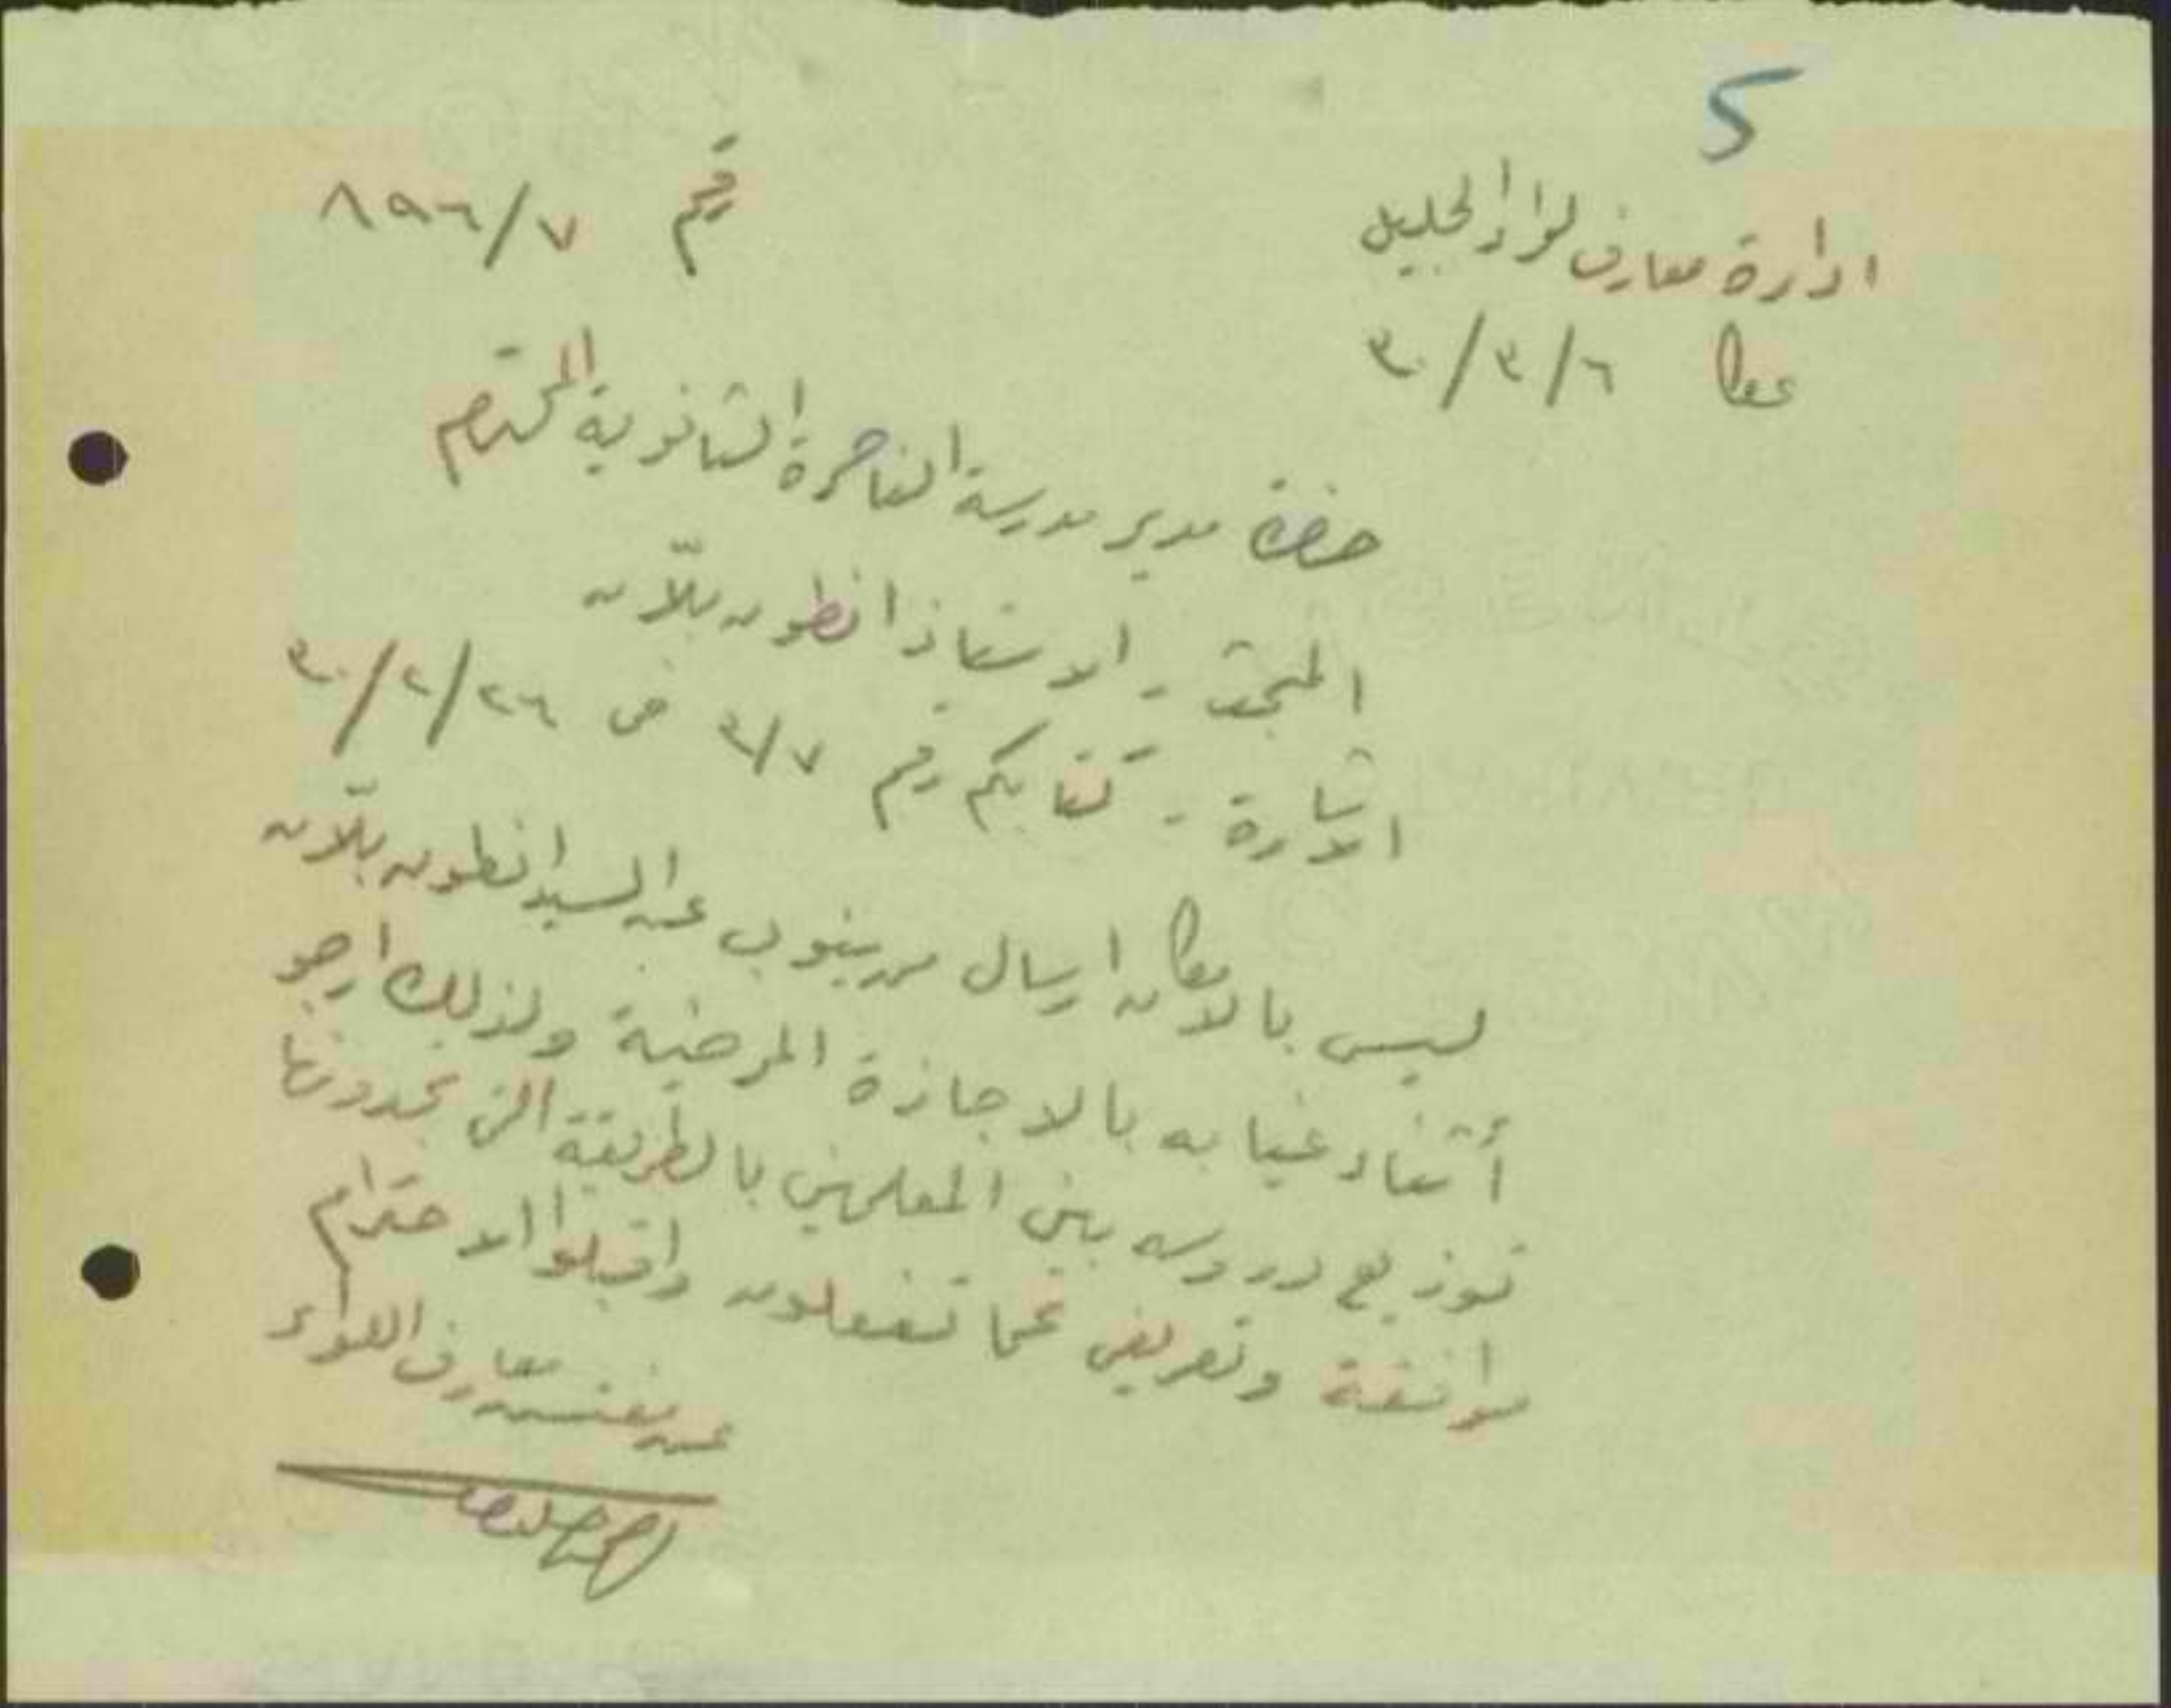 5
ادارة معارف لواء الجليل
رقم ٧/٨٩٦
عكا ٦/٣/٣٠
حضرة مدير مدرسة الناصرة الثانوية المحترم
المبحث - الاستاذ انطون بلّان
الاشارة - كتابكم رقم ٣/٧ في ٢٦/٢/٣٠
ليس بالامكان ارسال من ينوب عن السيد انطون بلّان
أثناء غيابه بالاجازة المرضية ولذلك ارجو
توزيع دروسه بين المعلمين بالطريقة التي تجدونها
موافقة وتعريفي عما تفعلون واقبلوا الاحترام
عن مفتش معارف اللواء